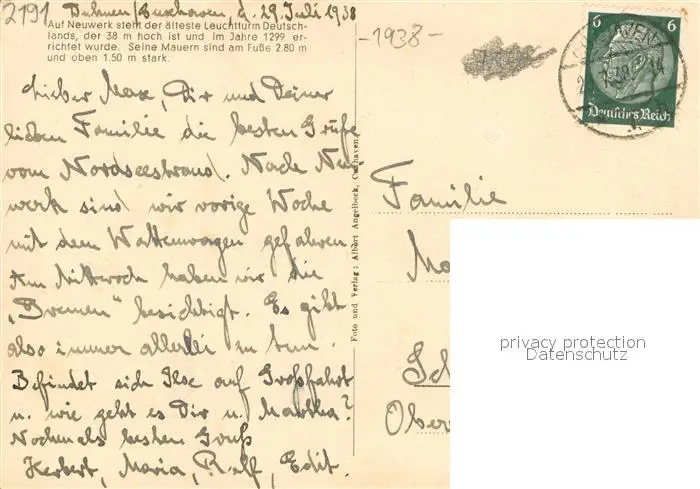 2191
Duhnen/Cuxhaven, d. 29. Juli 1938
Auf Neuwerk steht der älteste Leuchtturm Deutsch-
lands, der 38 m hoch ist und im Jahre 1299 er-
richtet wurde. Seine Mauern sind am Fuße 2.80 m
und oben 1.50 m stark.
Lieber Max, Dir und Deiner
lieben Familie die besten Grüße
vom Nordseestrand. Nach Neu
werk sind wir vorige Woche
mit dem Wattenwagen gefahren.
Am Mittwoch haben wir die
„Bremen" besichtigt. Es gibt
also immer allerlei zu tun.
Befindet sich Ilse auf Großfahrt
u. wie geht es Dir u. Martha?
Nochmals besten Gruß
Herbert, Maria, Ralf, Edit.
Foto und Verlag: Albert Angelbeck, Cuxhaven
-1938-
6 6
Deutsches Reich
Familie
privacy protection
Datenschutz